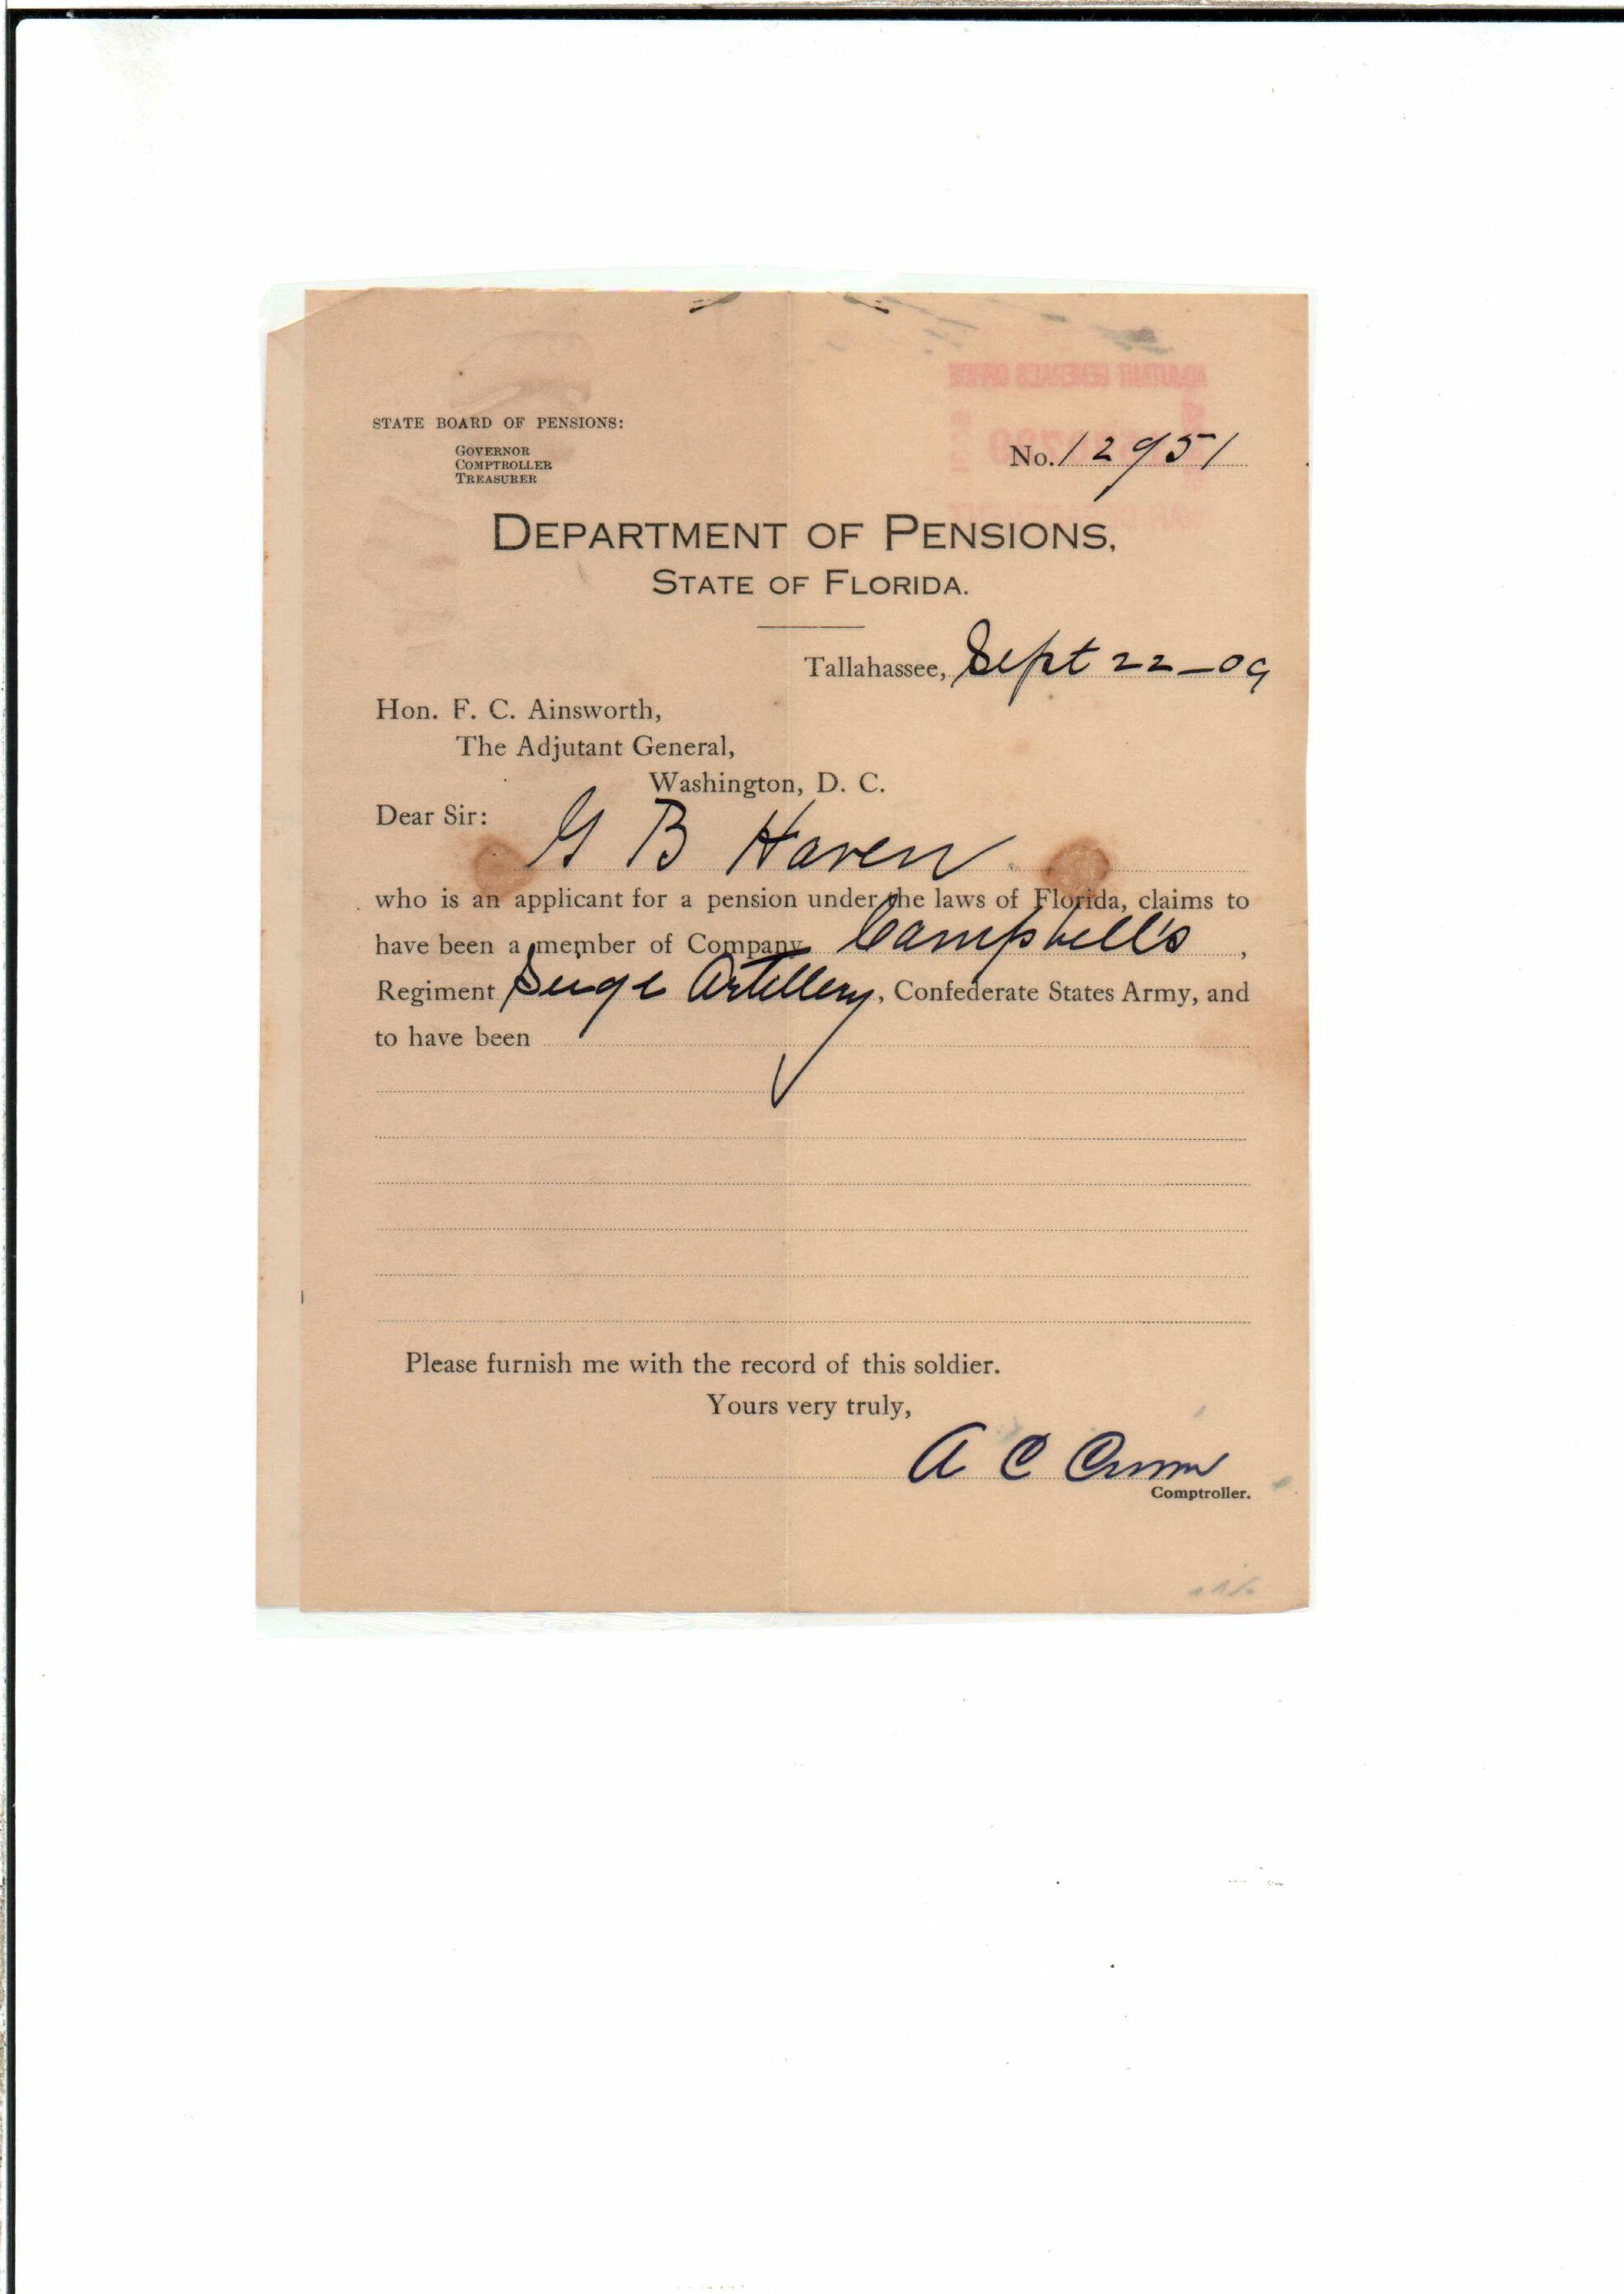 STATE BOARD OF PENSIONS:
GOVERNOR
COMPTROLLER
TREASURER
No. 12951
DEPARTMENT OF PENSIONS,
STATE OF FLORIDA.
Tallahassee, Sept 22-09
Hon. F. C. Ainsworth,
The Adjutant General,
Washington, D. C.
Dear Sir:
G B Haven
who is an applicant for a pension under the laws of Florida, claims to
have been a member of Company Campbell's,
Regiment Seige Artillery, Confederate States Army, and
to have been
Please furnish me with the record of this soldier.
Yours very truly,
A C Croom
Comptroller.
ADJUTANT GENERAL'S OFFICE